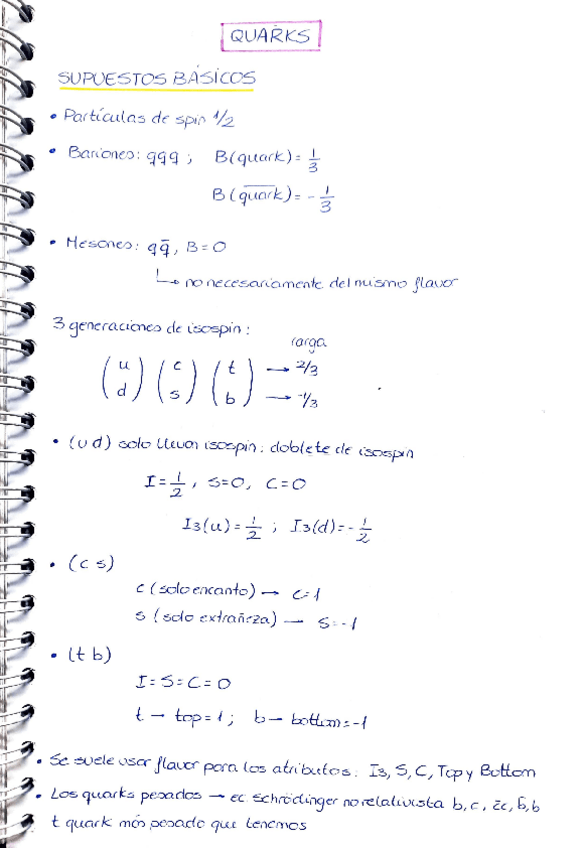 QUARKS
SUPUESTOS BÁSICOS
• Partículas de spin 1/2
• Bariones: qqq ; B(quark) = 1/3
B(q̅u̅a̅r̅k̅) = - 1/3
• Mesones: qq̄, B=0
↳ no necesariamente del mismo flavor
3 generaciones de isospin:
carga
(u d) (c s) (t b) → 2/3
→ -1/3
• (u d) solo llevan isospin: doblete de isospin
I = 1/2, S=0, C=0
I3(u) = 1/2 ; I3(d) = - 1/2
• (c s)
c (solo encanto) → C=1
s (solo extrañeza) → S=-1
• (t b)
I = S = C = 0
t → top = 1 ; b → bottom = -1
• Se suele usar flavor para los atributos: I3, S, C, Top y Bottom
• Los quarks pesados → ec. Schrödinger no relativista b, c, c̄c, b̄b
t quark más pesado que tenemos